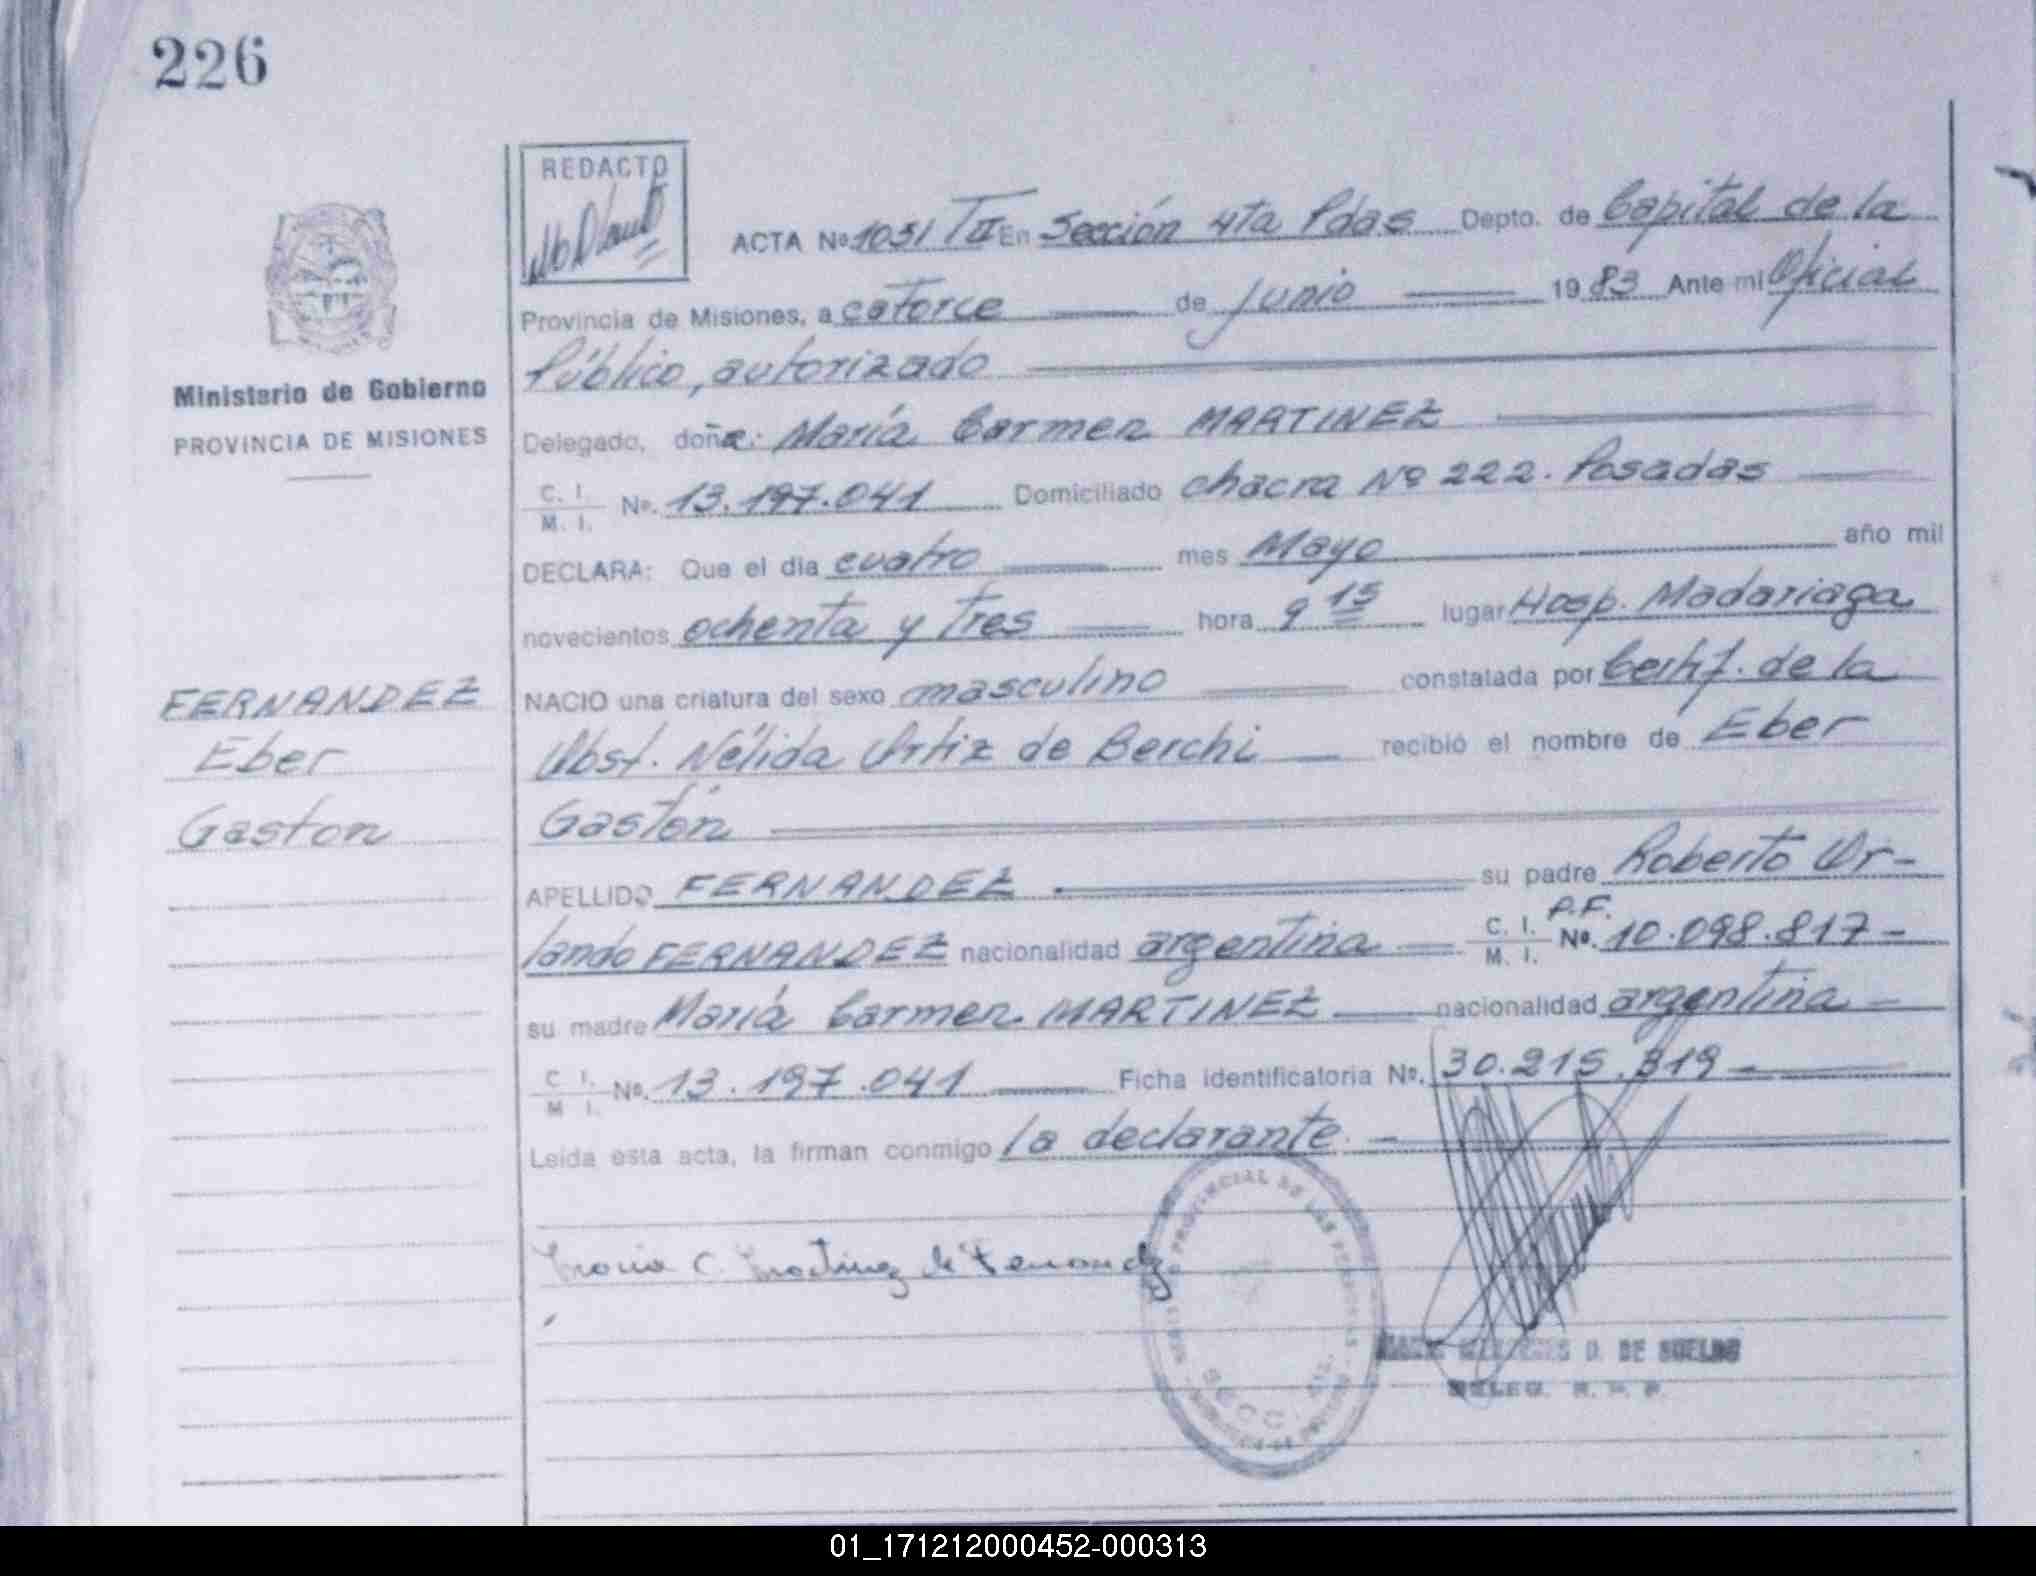 226
REDACTO
ACTA Nº 1051 TII En Sección 4ta Pdas Depto. de Capital de la
Provincia de Misiones, a catorce de junio 1983 Ante mi Oficial
Público, autorizado
Ministerio de Gobierno
PROVINCIA DE MISIONES
Delegado, doña: María Carmen MARTINEZ
C. I.
M. I. Nº. 13.197.041 Domiciliado chacra Nº 222. Posadas
DECLARA: Que el día cuatro mes Mayo año mil
novecientos ochenta y tres hora 9 15 lugar Hosp. Madariaga
FERNANDEZ
Eber
Gaston
NACIO una criatura del sexo masculino constatada por Certif. de la
Obst. Nélida Ortiz de Berchi recibió el nombre de Eber
Gastón
APELLIDO FERNANDEZ su padre Roberto Or-
lando FERNANDEZ nacionalidad argentina C. I. M. I. P.F. Nº. 10.098.817-
su madre María Carmen MARTINEZ nacionalidad argentina
C. I.
M. I. Nº. 13.197.041 Ficha identificatoria Nº. 30.215.319
Leida esta acta, la firman conmigo la declarante.
Maria C. Martinez de Fernandez
PROVINCIAL DE LAS PERSONAS
SECC.
D. DE SUELDO
DELEG. R. P. P.
01_171212000452-000313